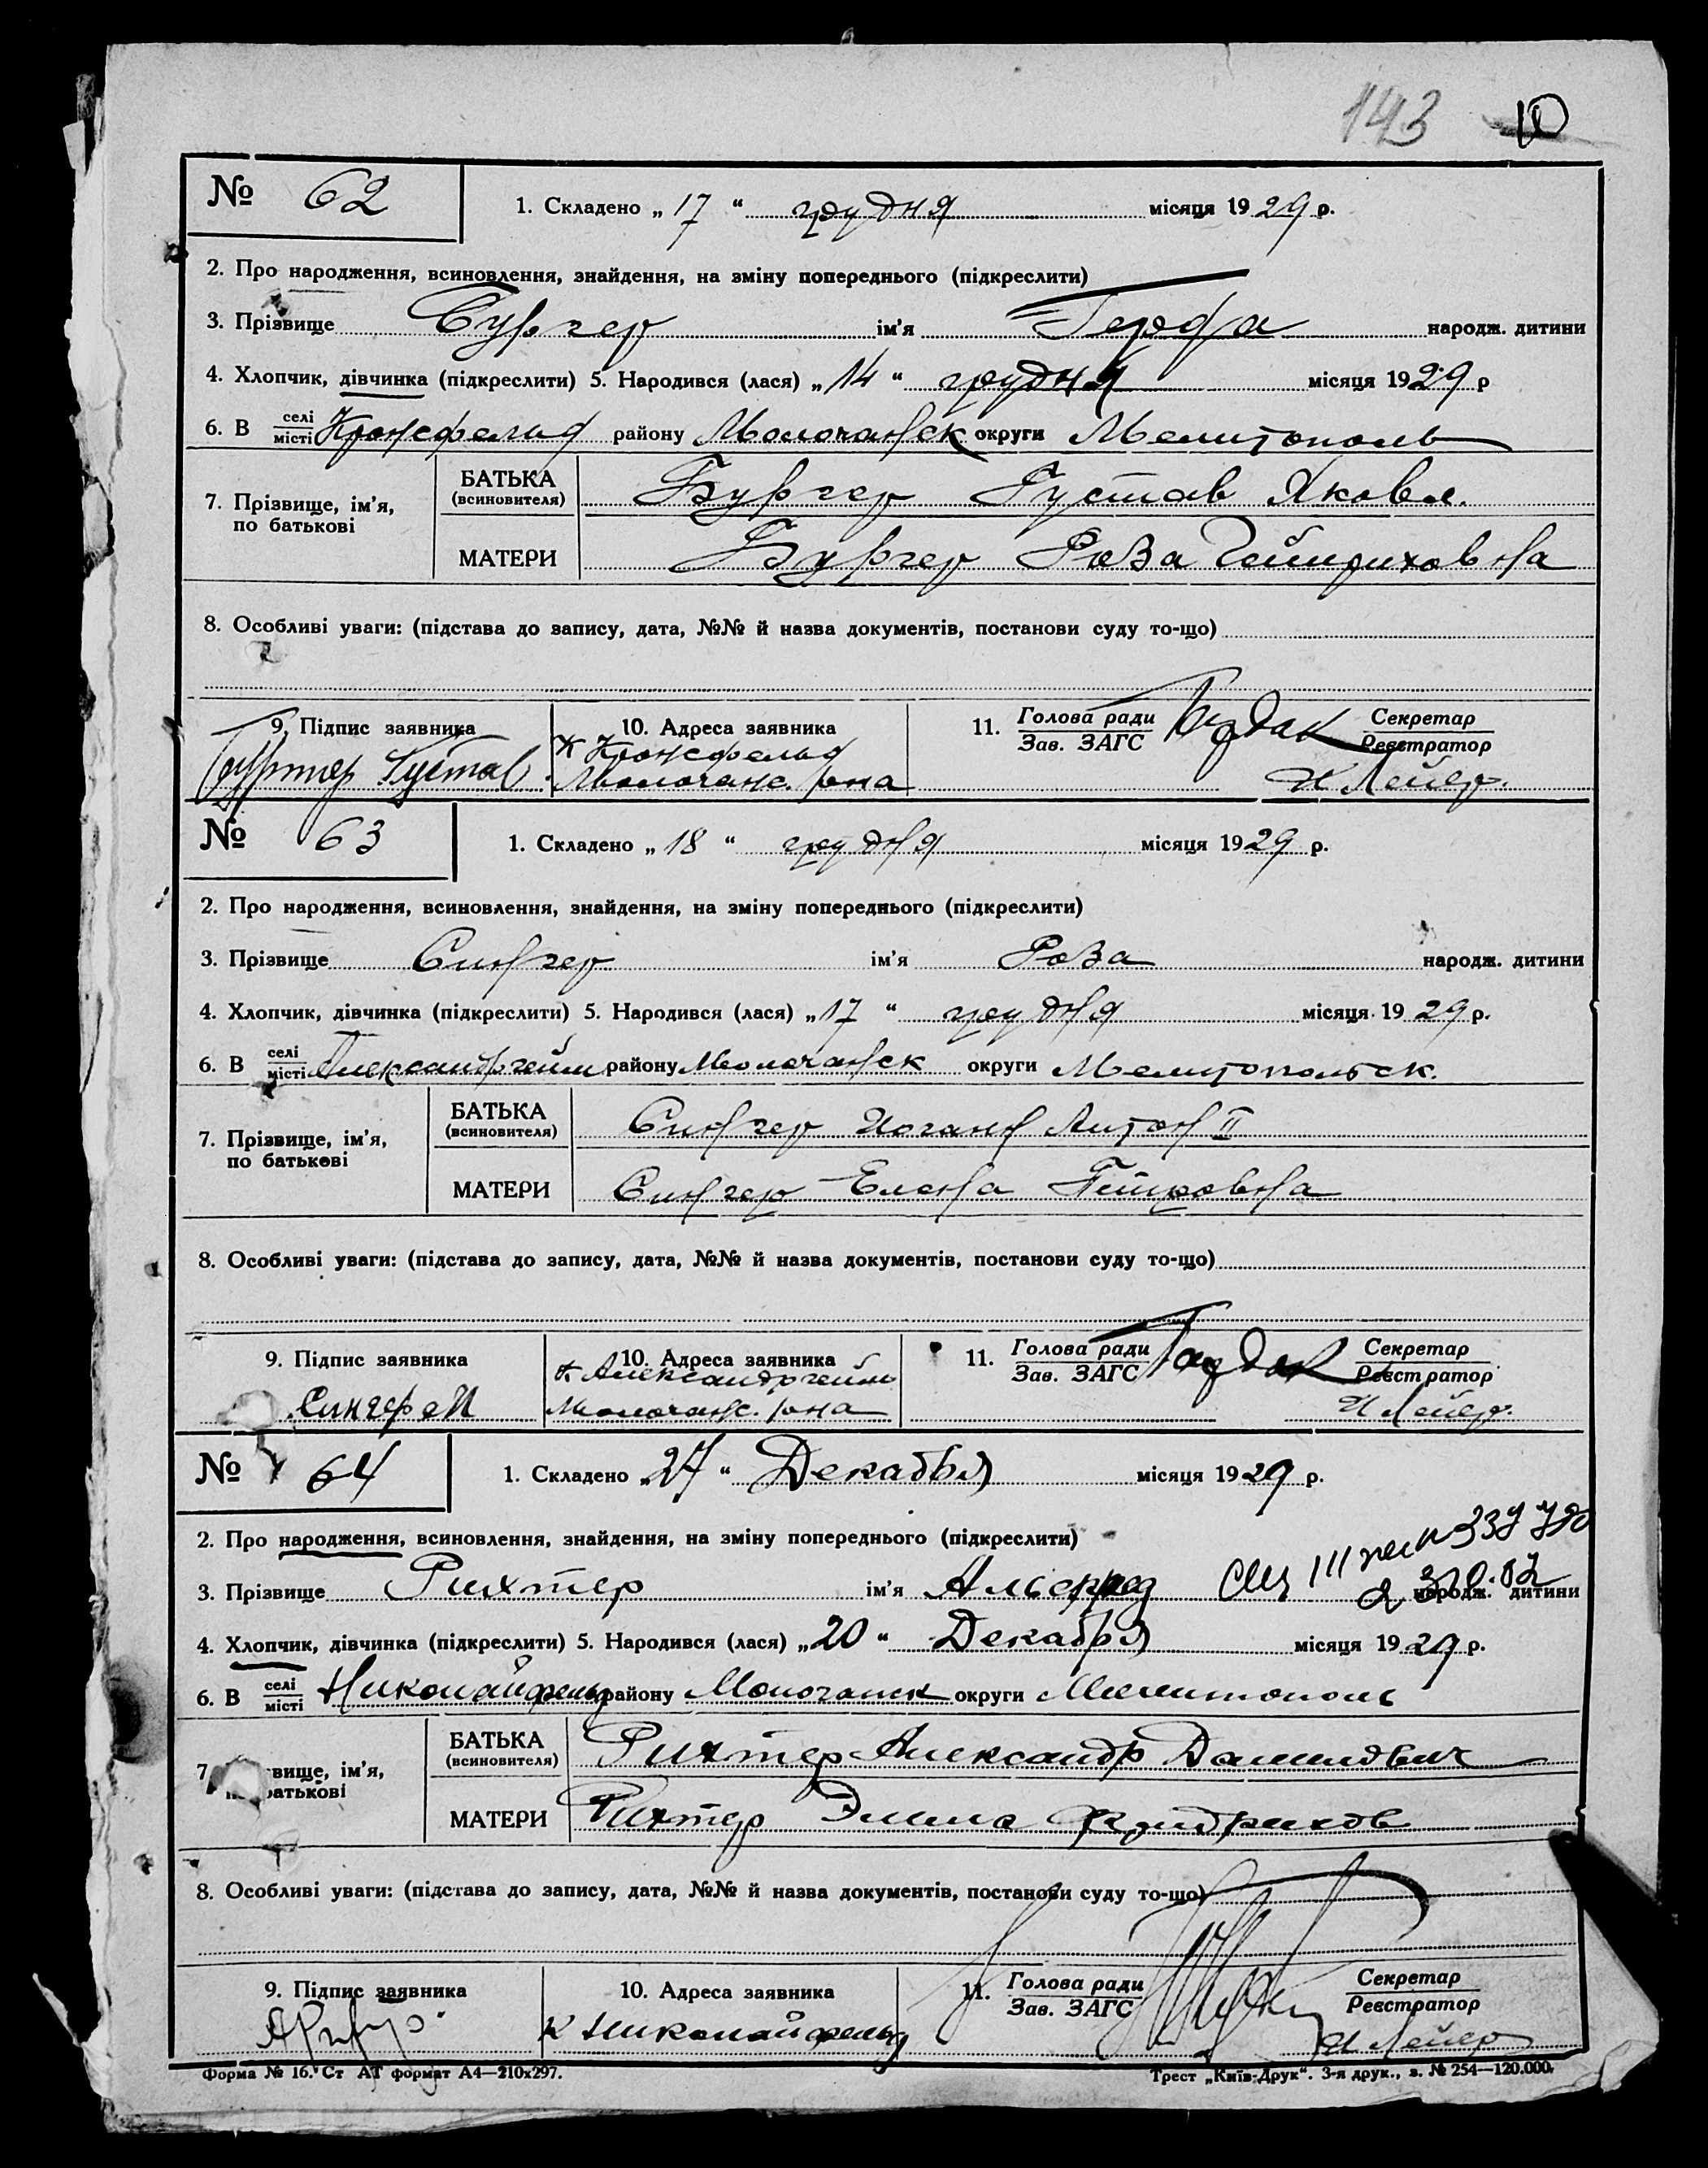 143 10
№ 62
1. Складено „17“ грудня місяця 1929 р.
2. Про народження, всиновлення, знайдення, на зміну попереднього (підкреслити)
3. Прізвище Бургер ім'я Герта народж. дитини
4. Хлопчик, дівчинка (підкреслити) 5. Народився (лася) „14“ грудня місяця 1929 р
6. В селі/місті Кронсфельд району Молочанск округи Мелитополь
7. Прізвище, ім'я, по батькові
БАТЬКА (всиновителя) Бургер Густав Яковл.
МАТЕРИ Бургер Роза Гейнриховна
8. Особливі уваги: (підстава до запису, дата, №№ й назва документів, постанови суду то-що)
9. Підпис заявника 10. Адреса заявника 11. Голова ради/Зав. ЗАГС Секретар/Реєстратор
Густав К Кронсфельд
Молочанс. рна И Лейер.
№ 63
1. Складено „18“ грудня місяця 1929 р.
2. Про народження, всиновлення, знайдення, на зміну попереднього (підкреслити)
3. Прізвище Сингер ім'я Роза народж. дитини
4. Хлопчик, дівчинка (підкреслити) 5. Народився (лася) „17“ грудня місяця 1929 р.
6. В селі/місті Александргейм району Молочанск округи Мелитопольск.
7. Прізвище, ім'я, по батькові
БАТЬКА (всиновителя) Сингер Иоганн Антон II
МАТЕРИ Сингер Елена Петровна
8. Особливі уваги: (підстава до запису, дата, №№ й назва документів, постанови суду то-що)
9. Підпис заявника 10. Адреса заявника 11. Голова ради/Зав. ЗАГС Секретар/Реєстратор
К Александргейм
Сингер И Молочанс. рна И Лейер.
№ 64
1. Складено „27“ Декабря місяця 1929 р.
2. Про народження, всиновлення, знайдення, на зміну попереднього (підкреслити)
3. Прізвище Рихтер ім'я Альфред народж. дитини
4. Хлопчик, дівчинка (підкреслити) 5. Народився (лася) „20“ Декабря місяця 1929 р.
6. В селі/місті Николайфельд району Молочанск округи Мелитополь
7. Прізвище, ім'я, по батькові
БАТЬКА (всиновителя) Рихтер Александр Данилович
МАТЕРИ Рихтер Эмма Фридрихов
8. Особливі уваги: (підстава до запису, дата, №№ й назва документів, постанови суду то-що)
9. Підпис заявника 10. Адреса заявника 11. Голова ради/Зав. ЗАГС Секретар/Реєстратор
К Николайфельд И Лейер
Форма № 16. Ст АТ формат А4—210х297. Трест „Київ-Друк“. 3-я друк., з. № 254—120.000.